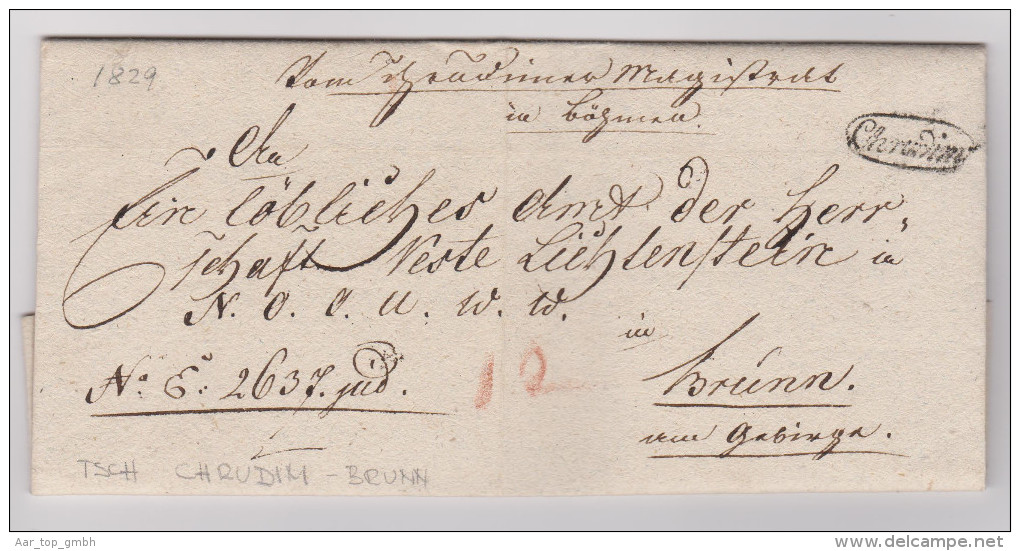 1829
Vom Chrudimer Magistrat
in Böhmen.
Chrudim
An
Ein löbliches Amt der Herr„
schaft Veste Lichtenstein in
N. O. O. U. W. W.
in
No. E: 2637. jud.
12
Brünn.
am Gebirge.
TSCH CHRUDIM - BRUNN
Aar_top_gmbh
delcampe.net